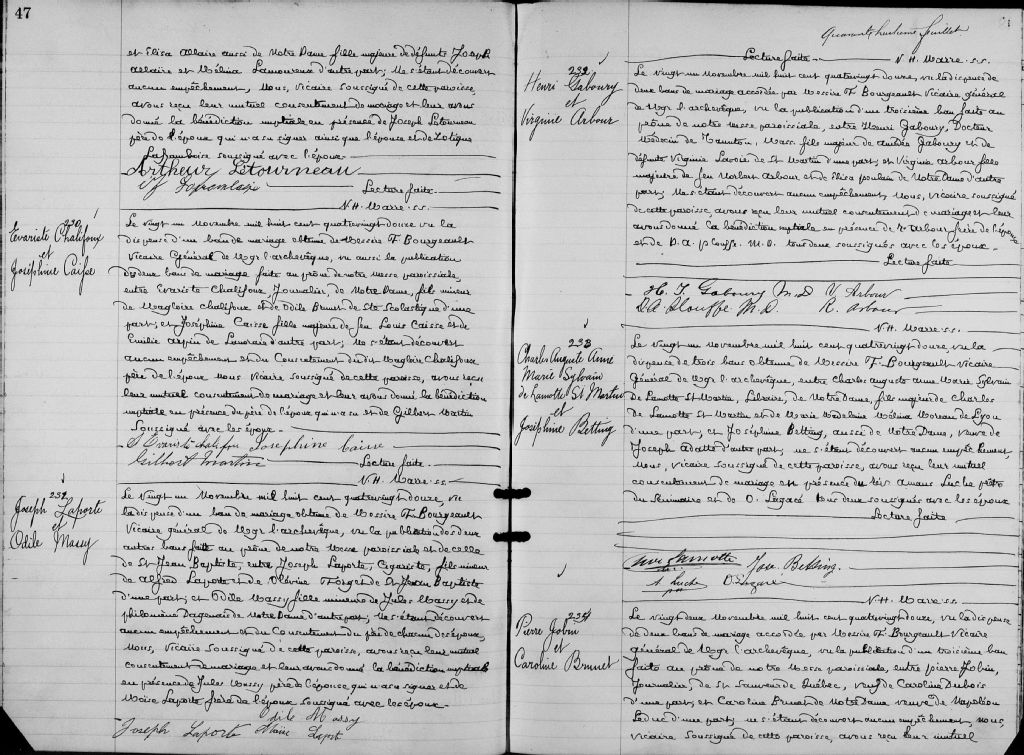 47
et Elisa Allaire aussi de Notre Dame fille majeure de défunts Joseph
Allaire et Mélina Lamoureux d'autre part; Ne s'étant découvert
aucun empêchement, Nous, Vicaire soussigné de cette paroisse,
avons reçu leur mutuel consentement de mariage et leur avons
donné la bénédiction nuptiale en présence de Joseph Létourneau
père de l'époux qui n'a su signer ainsi que l'épouse et de Zotique
Laframboise soussigné avec l'époux
Arthur Létourneau
Lecture faite.
N.H. Marre. s.s.
230
Evariste Chalifoux
et
Joséphine Caisse
Le vingt un Novembre mil huit cent quatrevingt douze vu la
dispense d'un ban de mariage obtenue de Messire F. Bourgeault
Vicaire Général de Mgr l'archevêque, vu aussi la publication
de deux bans de mariage faite au prône de notre Messe paroissiale,
entre Evariste Chalifoux, Journalier, de Notre Dame, fils mineur
de Magloire Chalifoux et de Odile Brunet de Ste Scholastique d'une
part; et Joséphine Caisse fille majeure de feu Louis Caisse et de
Emilie Arpin de Lanoraie d'autre part; Ne s'étant découvert
aucun empêchement et du Consentement du dit Magloire Chalifoux
père de l'époux nous Vicaire soussigné de cette paroisse, avons reçu
leur mutuel consentement de mariage et leur avons donné la bénédiction
nuptiale en présence du père de l'époux qui n'a su et de Gilbert Martin
Soussigné avec les époux
Evariste Chalifoux Josephine Caisse
Gilbert Martin
Lecture faite.
N.H. Marre. s.s.
231
Joseph Laporte
et
Odile Massy
Le vingt un Novembre mil huit cent quatrevingt douze, vu
la dispense d'un ban de mariage obtenue de Messire F. Bourgeault
Vicaire général de Mgr l'archevêque, vu la publication des deux
autres bans faite au prône de notre Messe paroissiale et de celle
de St Jean Baptiste, entre Joseph Laporte, Cigariste, fils mineur
de Alfred Laporte et de Olérine Forget de St Jean Baptiste
d'une part; et Odile Massy fille mineure de Jules Massy et de
philomène Dagenais de Notre Dame d'autre part; Ne s'étant découvert
aucun empêchement et du Consentement du père de chacun des époux,
Nous, Vicaire soussigné de cette paroisse, avons reçu leur mutuel
consentement de mariage et leur avons donné la bénédiction nuptiale
en présence de Jules Massy père de l'épouse qui n'a su signer et de
Moïse Laporte frère de l'époux soussigné avec les époux
Odile Massy
Joseph Laporte
Quarante huitième feuillet
Lecture faite
N.H. Marre. s.s.
232
Henri Gaboury
et
Virginie Arbour
Le vingt un Novembre mil huit cent quatrevingt douze, vu la dispense de
deux bans de mariage accordée par Messire F. Bourgeault Vicaire général
de Mgr l'archevêque, vu la publication d'un troisième ban faite au
prône de notre messe paroissiale, entre Henri Gaboury, Docteur
Médecin de Taunton, Mass. fils majeur de Amédée Gaboury et de
défunte Virginie Lavoie de St Martin d'une part; et Virginie Arbour fille
majeure de feu Norbert Arbour et de Elisa poulain de Notre Dame d'autre
part; Ne s'étant découvert aucun empêchement, Nous, Vicaire soussigné
de cette paroisse, avons reçu leur mutuel consentement de mariage et leur
avons donné la bénédiction nuptiale en présence de Arbour frère de l'épouse
et de D.A. Plouffe. M.D. tous deux soussignés avec les époux
Lecture faite
H. J. Gaboury M.D V. Arbour
D A Plouffe M.D. R. Arbour
N.H. Marre. s.s.
233
Charles Auguste Anne
Marie Sylvain
de Lamotte St Martin
et
Joséphine Betting
Le vingt un novembre mil huit cent quatrevingt douze, vu la
dispense de trois bans obtenue de Messire F. Bourgeault, Vicaire
Général de Mgr l'archevêque, entre Charles Auguste Anne Marie Sylvain
de Lamotte St Martin, Libraire, de Notre Dame, fils majeur de Charles
de Lamotte St Martin et de Marie Madeleine Mélina Moreau de Lyon
d'une part; et Joséphine Betting, aussi de Notre Dame, veuve de
Joseph Adatte d'autre part; ne s'étant découvert aucun empêchement,
Nous, Vicaire soussigné de cette paroisse, avons reçu leur mutuel
consentement de mariage en présence de Amans Luche prêtre
du Séminaire et de O. Lagacé tous deux soussignés avec les époux
Lecture faite
Jos. Betting.
A. Luche O. Lagacé
N.H. Marre. s.s.
234
Pierre Jobin
et
Caroline Brunet
Le vingt deux Novembre mil huit cent quatrevingt douze, vu la dispense
de deux bans de mariage accordée par Messire F. Bourgeault Vicaire
général de Mgr l'archevêque, vu la publication d'un troisième ban
faite au prône de notre Messe paroissiale, entre pierre Jobin,
Journalier, de St Sauveur de Québec, veuf de Caroline Dubois
d'une part, et Caroline Brunet de Notre Dame veuve de Napoléon
Leduc d'une part; ne s'étant découvert aucun empêchement, nous,
Vicaire soussigné de cette paroisse, avons reçu leur mutuel